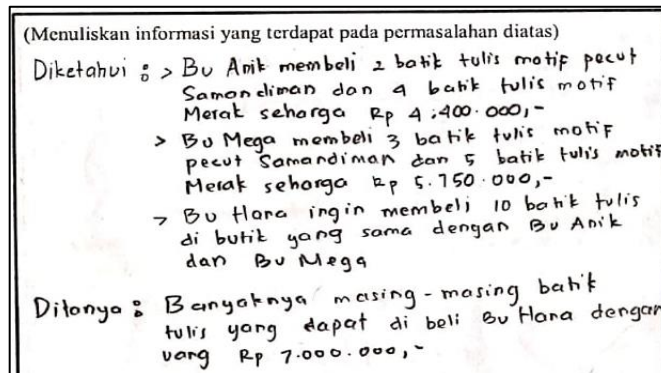 (Menuliskan informasi yang terdapat pada permasalahan diatas)
Diketahui : > Bu Anik membeli 2 batik tulis motif pecut
Samandiman dan 4 batik tulis motif
Merak seharga Rp 4.400.000,-
> Bu Mega membeli 3 batik tulis motif
pecut Samandiman dan 5 batik tulis motif
Merak seharga Rp 5.750.000,-
> Bu Hana ingin membeli 10 batik tulis
di butik yang sama dengan Bu Anik
dan Bu Mega
Ditanya : Banyaknya masing-masing batik
tulis yang dapat di beli Bu Hana dengan
uang Rp 7.000.000,-